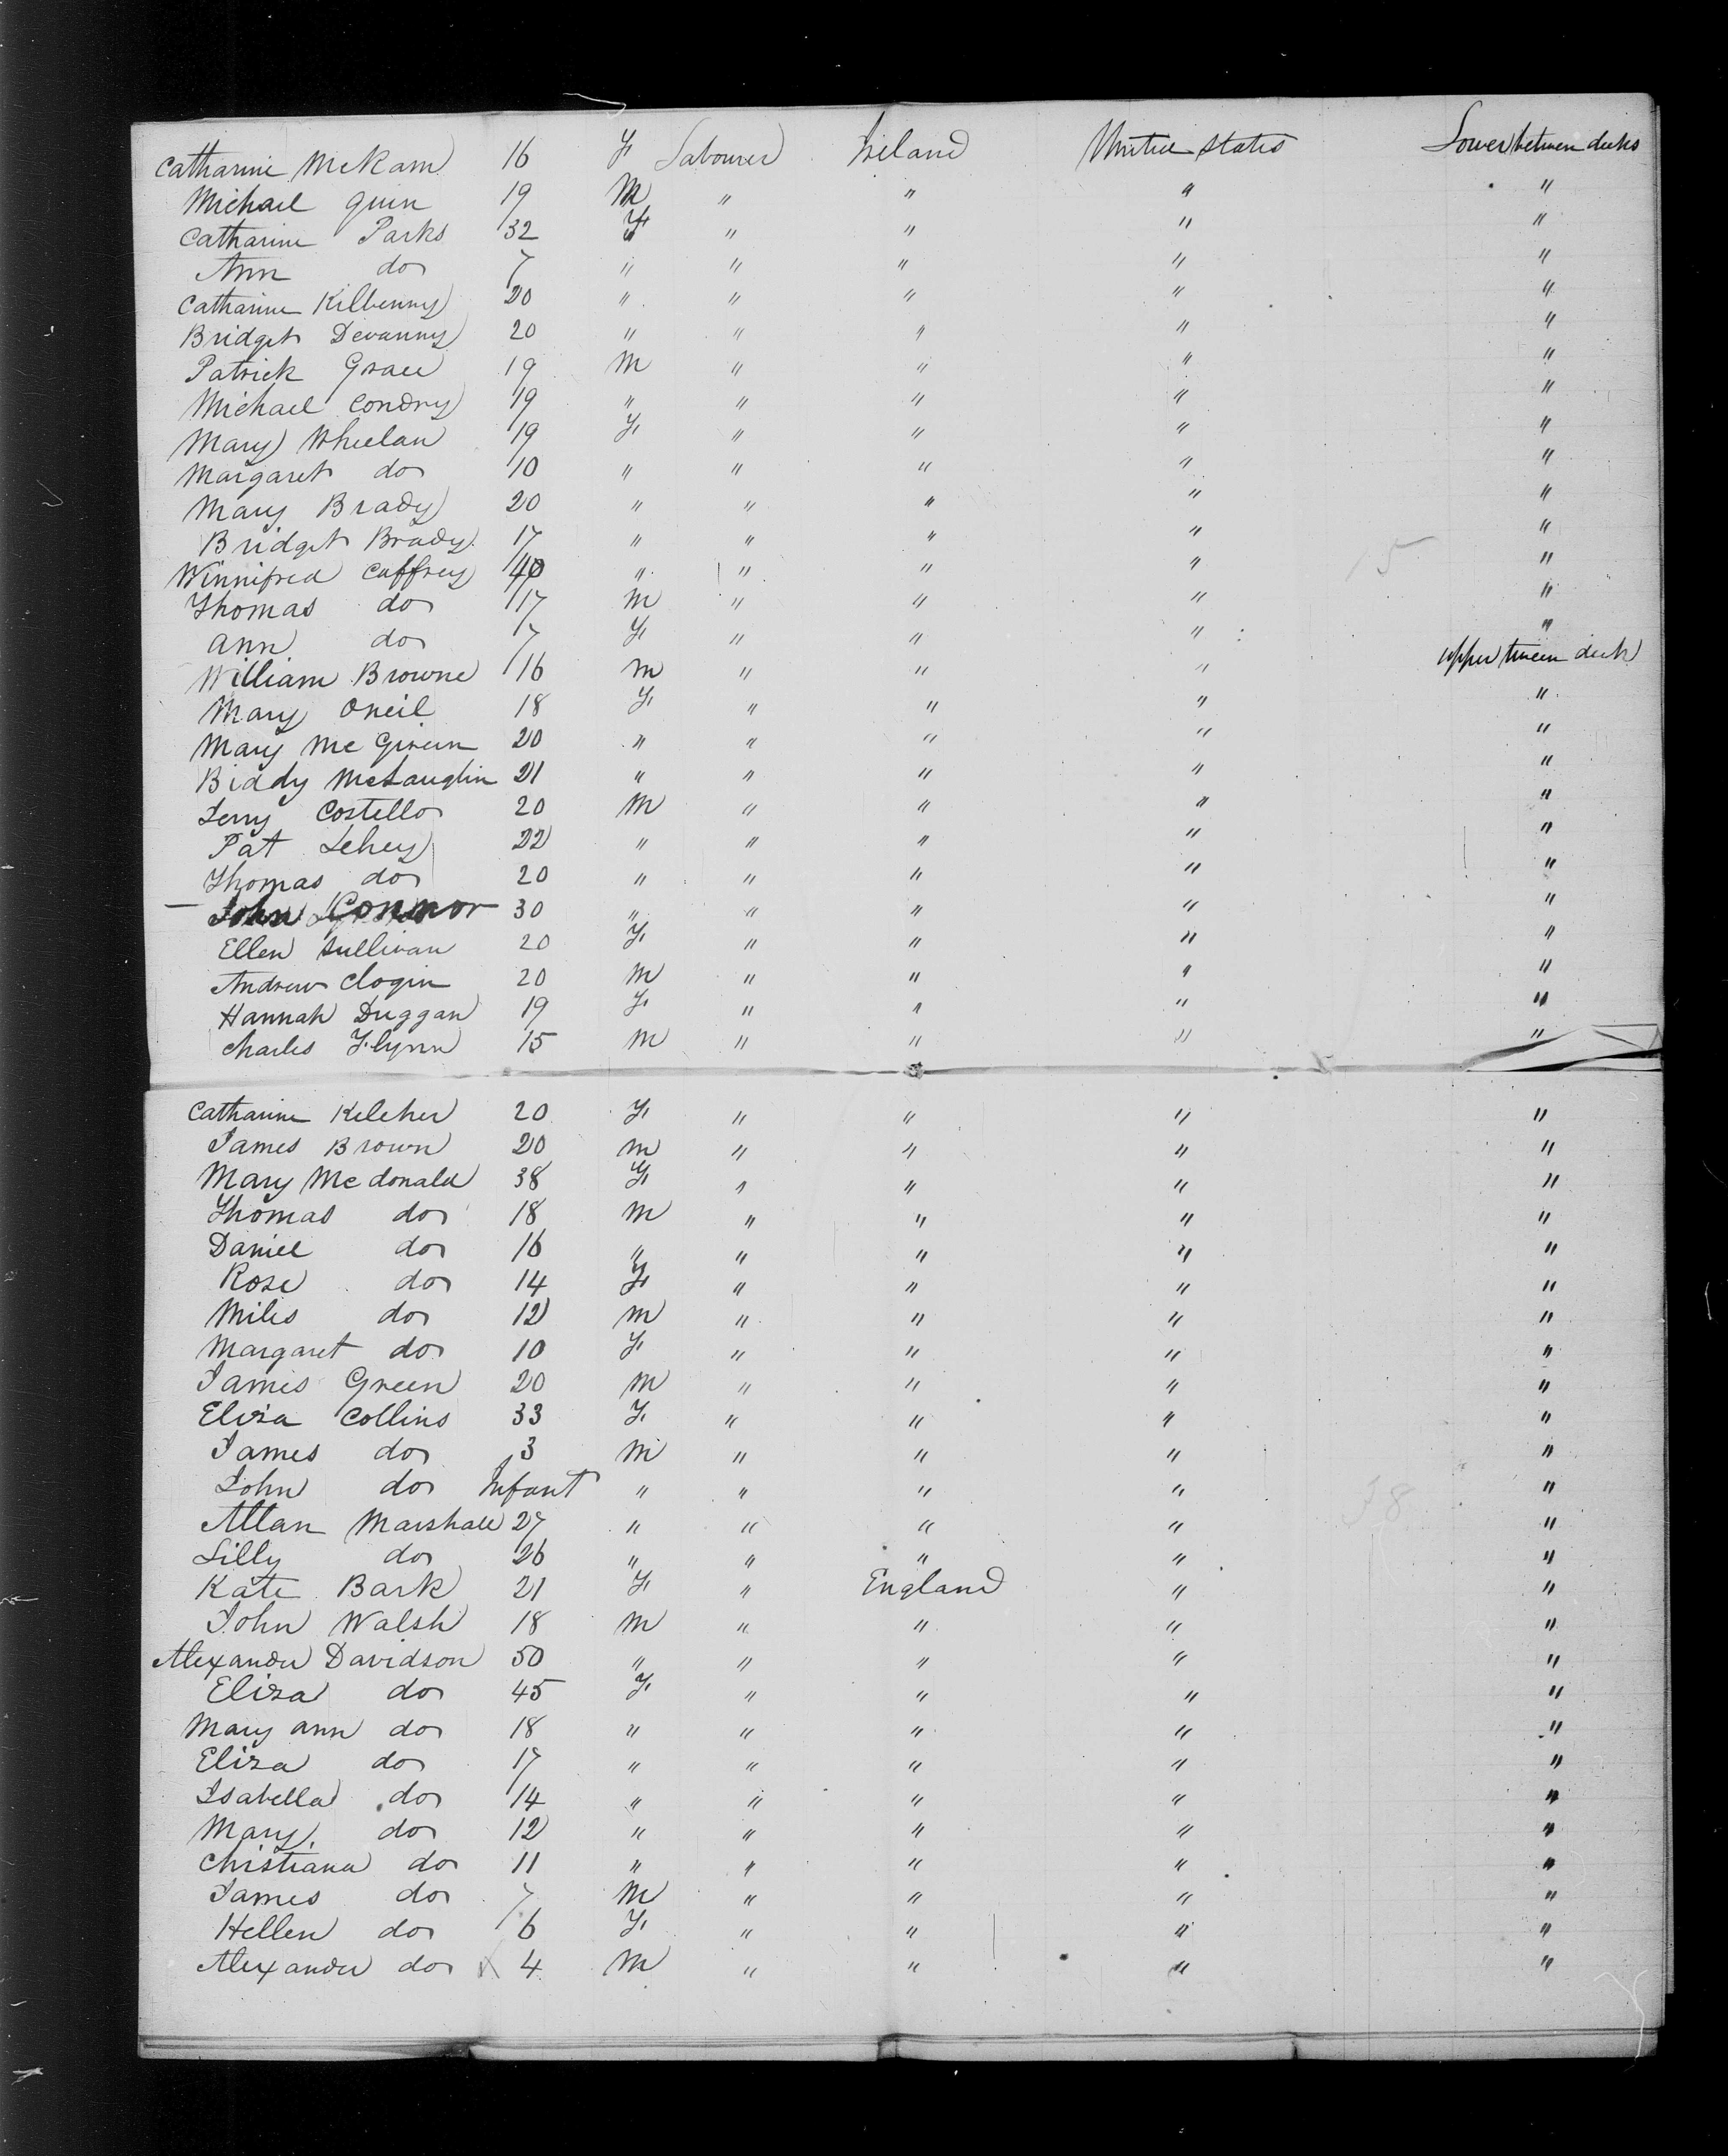 Catharine McKam 16 F. Labourer Ireland United States Lower between decks
Michael Quin 19 M " " " "
Catharine Parks 32 F. " " " "
Ann do 7 " " " " "
Catharine Kilbenny 20 " " " " "
Bridget Devanny 20 " " " " "
Patrick Grace 19 M " " " "
Michael Condry 19 " " " " "
Mary Wheelan 19 F. " " " "
Margaret do 10 " " " " "
Mary Brady 20 " " " " "
Bridget Brady 17 " " " " "
Winnifred Caffrey 40 " " " " "
15
Thomas do 17 M " " " "
Ann do 7 F. " " " "
William Browne 16 M " " " upper tween deck
Mary Oneil 18 F. " " " "
Mary McGivein 20 " " " " "
Biddy McLauglin 21 " " " " "
Jerry Costello 20 M " " " "
Pat Lehey 22 " " " " "
Thomas do 20 " " " " "
John Connor 30 " " " " "
Ellen Sullivan 20 F. " " " "
Andrew Clogin 20 M " " " "
Hannah Duggan 19 F. " " " "
Charles Flynn 15 M " " " "
Catharine Keleher 20 F. " " " "
James Brown 20 M " " " "
Mary McDonald 38 F. " " " "
Thomas do 18 M " " " "
Daniel do 16 " " " " "
Rose do 14 F. " " " "
Miles do 12 M " " " "
Margaret do 10 F. " " " "
James Green 20 M " " " "
Eliza Collins 33 F. " " " "
James do 3 M " " " "
John do Infant " " " " "
38
Allan Marshall 27 " " " " "
Lilly do 26 " " " " "
Kate Bark 21 F. " England " "
John Walsh 18 M " " " "
Alexander Davidson 50 " " " " "
Eliza do 45 F. " " " "
Mary Ann do 18 " " " " "
Eliza do 17 " " " " "
Isabella do 14 " " " " "
Mary do 12 " " " " "
Christiana do 11 " " " " "
James do 7 M " " " "
Hellen do 6 F. " " " "
Alexander do X 4 M " " " "